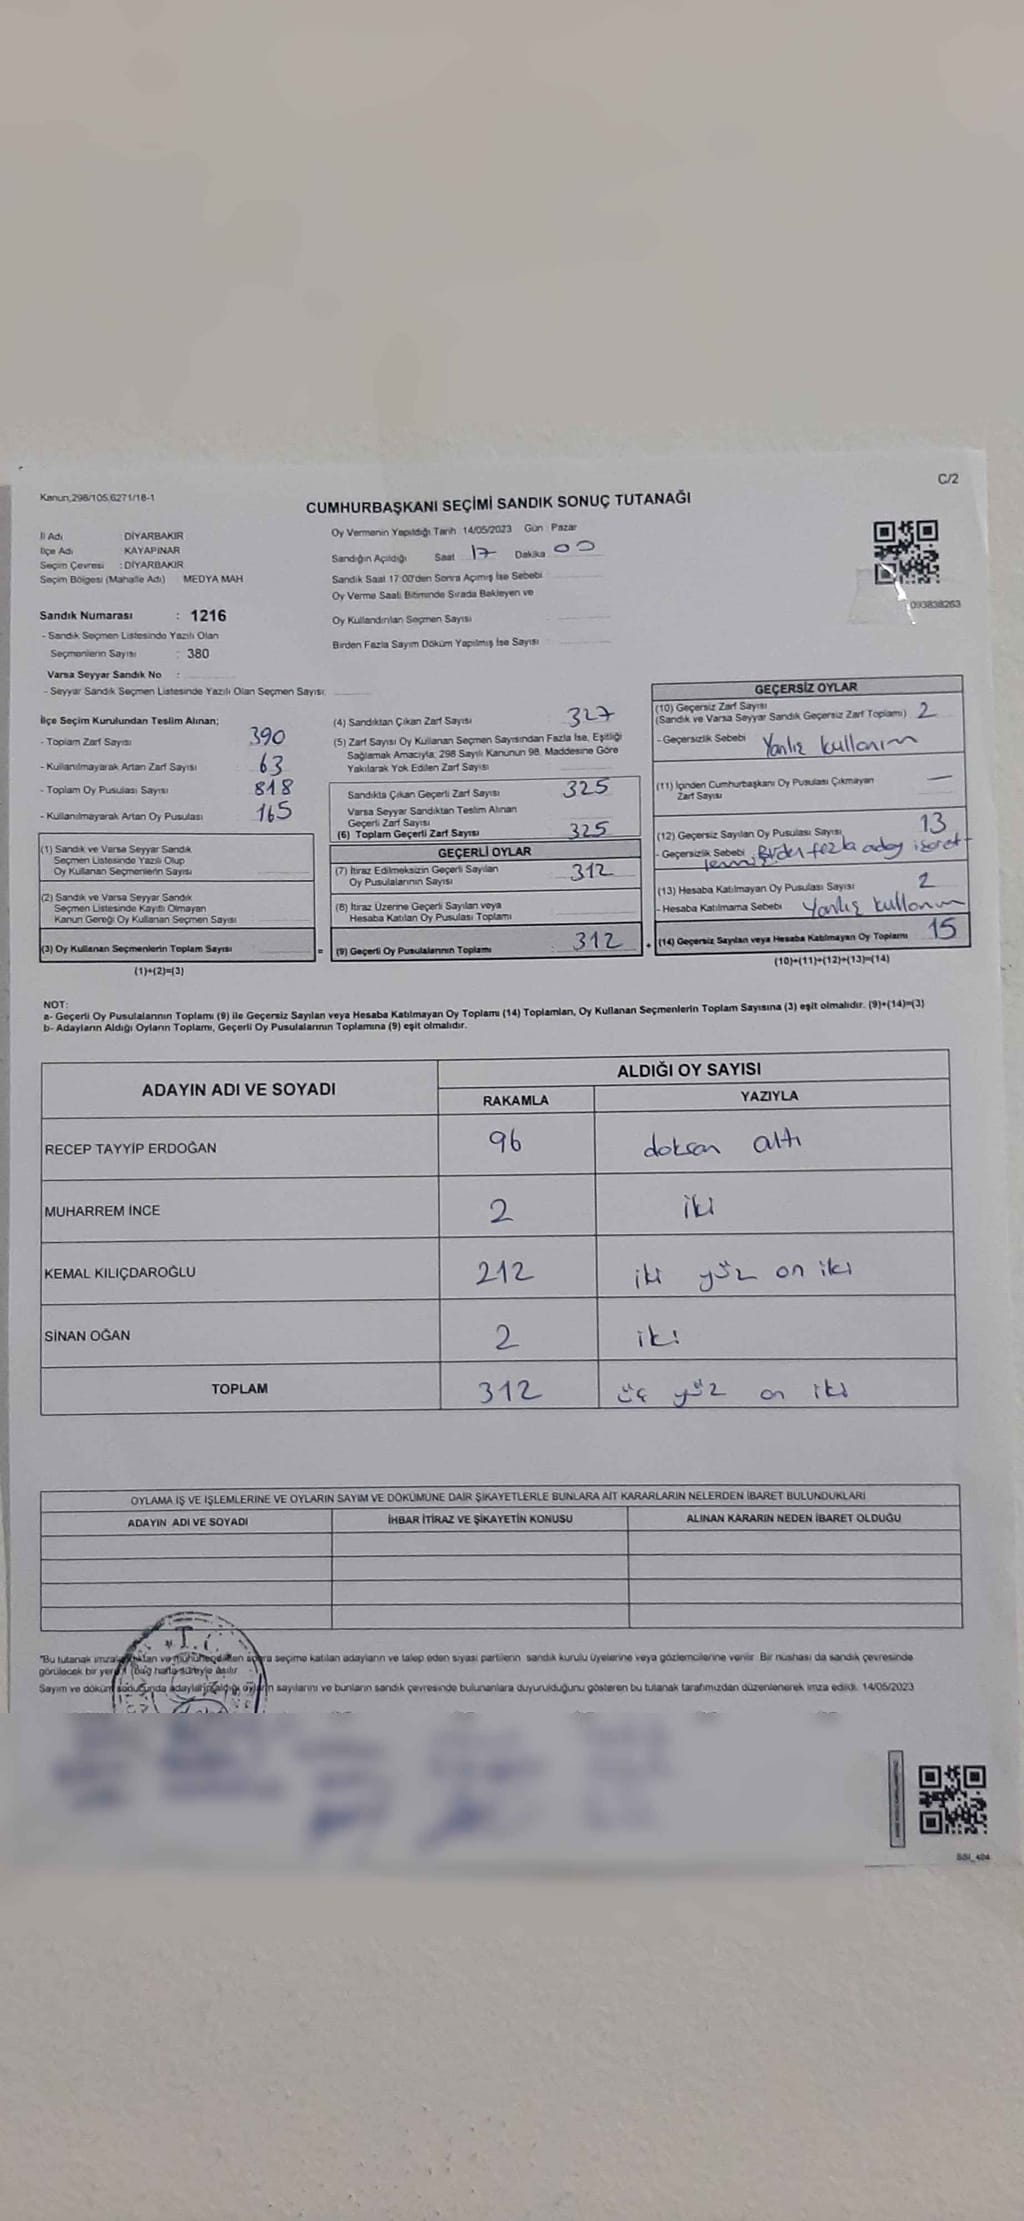 C/2
Kanun;298/105,6271/18-1
CUMHURBAŞKANI SEÇİMİ SANDIK SONUÇ TUTANAĞI
İl Adı DİYARBAKIR
İlçe Adı KAYAPINAR
Seçim Çevresi : DİYARBAKIR
Seçim Bölgesi (Mahalle Adı) MEDYA MAH
Sandık Numarası : 1216
- Sandık Seçmen Listesinde Yazılı Olan
Seçmenlerin Sayısı : 380
Varsa Seyyar Sandık No :
- Seyyar Sandık Seçmen Listesinde Yazılı Olan Seçmen Sayısı:
Oy Vermenin Yapıldığı Tarih 14/05/2023 Gün Pazar
Sandığın Açıldığı Saat 17 Dakika 00
Sandık Saat 17:00'den Sonra Açımış İse Sebebi
Oy Verme Saati Bitiminde Sırada Bekleyen ve
Oy Kullandırılan Seçmen Sayısı
Birden Fazla Sayım Döküm Yapılmış İse Sayısı
093838263
İlçe Seçim Kurulundan Teslim Alınan;
- Toplam Zarf Sayısı 390
- Kullanılmayarak Artan Zarf Sayısı 63
- Toplam Oy Pusulası Sayısı 818
- Kullanılmayarak Artan Oy Pusulası 165
(1) Sandık ve Varsa Seyyar Sandık
Seçmen Listesinde Yazılı Olup
Oy Kullanan Seçmenlerin Sayısı
(2) Sandık ve Varsa Seyyar Sandık
Seçmen Listesinde Kayıtlı Olmayan
Kanun Gereği Oy Kullanan Seçmen Sayısı
(3) Oy Kullanan Seçmenlerin Toplam Sayısı =
(1)+(2)=(3)
(4) Sandıktan Çıkan Zarf Sayısı 327
(5) Zarf Sayısı Oy Kullanan Seçmen Sayısından Fazla İse, Eşitliği
Sağlamak Amacıyla; 298 Sayılı Kanunun 98. Maddesine Göre
Yakılarak Yok Edilen Zarf Sayısı
Sandıkta Çıkan Geçerli Zarf Sayısı 325
Varsa Seyyar Sandıktan Teslim Alınan
Geçerli Zarf Sayısı
(6) Toplam Geçerli Zarf Sayısı 325
GEÇERLİ OYLAR
(7) İtiraz Edilmeksizin Geçerli Sayılan
Oy Pusulalarının Sayısı 312
(8) İtiraz Üzerine Geçerli Sayılan veya
Hesaba Katılan Oy Pusulası Toplamı
(9) Geçerli Oy Pusulalarının Toplamı 312 +
GEÇERSİZ OYLAR
(10) Geçersiz Zarf Sayısı
(Sandık ve Varsa Seyyar Sandık Geçersiz Zarf Toplamı) 2
- Geçersizlik Sebebi Yanlız kullanım
(11) İçinden Cumhurbaşkanı Oy Pusulası Çıkmayan
Zarf Sayısı —
(12) Geçersiz Sayılan Oy Pusulası Sayısı 13
- Geçersizlik Sebebi Birden fazla aday işaret
(13) Hesaba Katılmayan Oy Pusulası Sayısı 2
- Hesaba Katılmama Sebebi Yanlız kullanım
(14) Geçersiz Sayılan veya Hesaba Katılmayan Oy Toplamı 15
(10)+(11)+(12)+(13)=(14)
NOT:
a- Geçerli Oy Pusulalarının Toplamı (9) ile Geçersiz Sayılan veya Hesaba Katılmayan Oy Toplamı (14) Toplamları, Oy Kullanan Seçmenlerin Toplam Sayısına (3) eşit olmalıdır. (9)+(14)=(3)
b- Adayların Aldığı Oyların Toplamı, Geçerli Oy Pusulalarının Toplamına (9) eşit olmalıdır.
ADAYIN ADI VE SOYADI ALDIĞI OY SAYISI
RAKAMLA YAZIYLA
RECEP TAYYİP ERDOĞAN 96 doksan altı
MUHARREM İNCE 2 iki
KEMAL KILIÇDAROĞLU 212 iki yüz on iki
SİNAN OĞAN 2 iki
TOPLAM 312 üç yüz on iki
OYLAMA İŞ VE İŞLEMLERİNE VE OYLARIN SAYIM VE DÖKÜMÜNE DAİR ŞİKAYETLERLE BUNLARA AİT KARARLARIN NELERDEN İBARET BULUNDUKLARI
ADAYIN ADI VE SOYADI İHBAR İTİRAZ VE ŞİKAYETİN KONUSU ALINAN KARARIN NEDEN İBARET OLDUĞU
T.C
"Bu tutanak sonra seçime katılan adayların ve talep eden siyasi partilerin sandık kurulu üyelerine veya gözlemcilerine verilir. Bir nüshası da sandık çevresinde
görülecek bir yere bir hafta süreyle asılır
Sayım ve döküm sonuğunda adayların aldığı oyların sayılarını ve bunların sandık çevresinde bulunanlara duyurulduğunu gösteren bu tutanak tarafımızdan düzenlenerek imza edildi. 14/05/2023